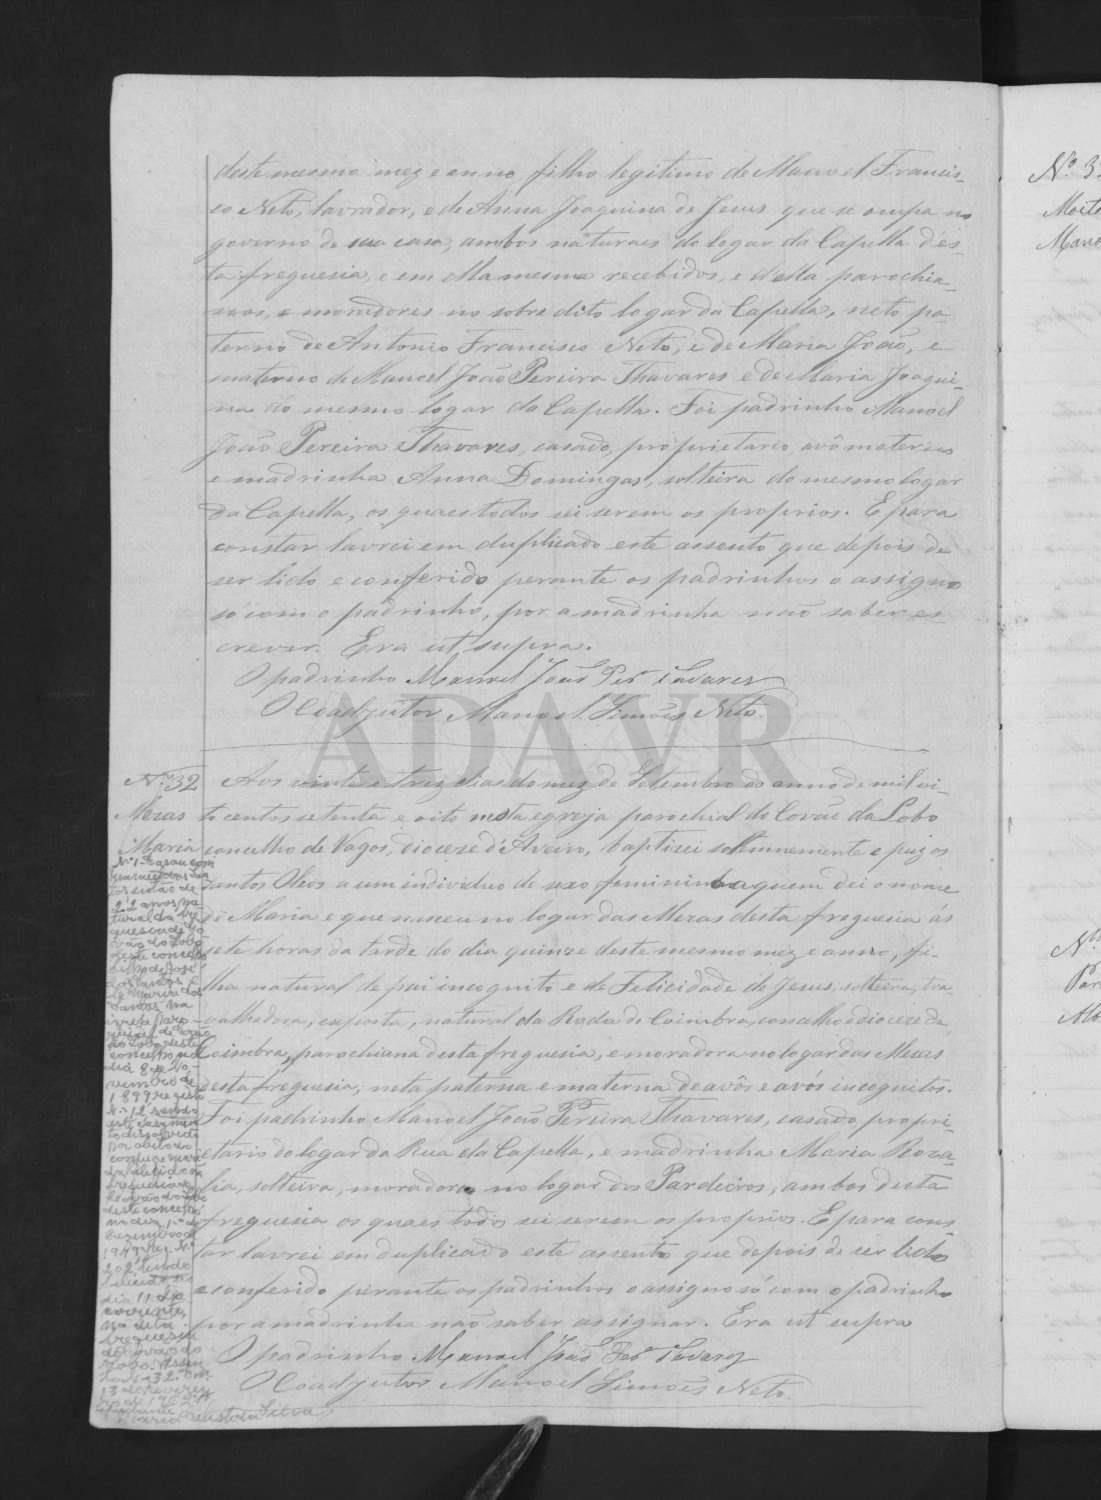 deste mesmo mez e anno, filho legitimo de Manoel Francis-
co Neto, lavrador, e de Anna Joaquina de Jesus que se ocupa no
governo de sua casa, ambos naturaes do logar da Capella d'es-
ta freguesia, e em ella mesma recebidos, e d'ella parochia-
nos, e moradores no sobre dito logar da Capella, neto pa-
terno de Antonio Francisco Neto, e de Maria João, e
materno de Manoel João Pereira Thavares e de Maria Joaqui-
na do mesmo logar da Capella. Foi padrinho Manoel
João Pereira Thavares, casado, proprietario, avô materno
e madrinha Anna Domingas, solteira do mesmo logar
da Capella, os quaes todos sei serem os proprios. E para
constar lavrei em duplicado este assento que depois de
ser lido e conferido perante os padrinhos o assigno
só com o padrinho, por a madrinha não saber es-
crever. Era ut supra.
O padrinho Manoel João Per.ª Tavares
O Coadjutor Manoel Simões Neto.
ADAVR
N.º 32
Mezas
Maria
Aos vinte e trez dias do mez de Setembro do anno de mil oi-
to centos setenta e oito nesta egreja parochial do Covão do Lobo
concelho de Vagos, diocese d'Aveiro, baptizei solemnemente e puz os
Santos Oleos a um individuo do sexo feminino a quem dei o nome
de Maria e que nasceu no logar das Mezas desta freguesia ás
sete horas da tarde do dia quinze deste mesmo mez e anno, fi-
lha natural de pai incognito e de Felicidade de Jesus, solteira, tra-
balhadora, exposta, natural da Roda de Coimbra, concelho e diocese de
Coimbra, parochiana desta freguesia, e moradora no logar das Mezas
desta freguesia; neta paterna e materna de avôs e avós incognitos.
Foi padrinho Manoel João Pereira Thavares, casado, propri-
etario do logar da Rua da Capella, e madrinha Maria Roza-
lia, solteira, moradora no logar dos Pardeiros, ambos desta
freguesia os quaes todos sei serem os proprios. E para cons-
tar lavrei em duplicado este assento que depois de ser lido
e conferido perante os padrinhos o assigno só com o padrinho
por a madrinha não saber assignar. Era ut supra
O padrinho Manoel João Per.ª Tavares
O Coadjutor Manoel Simões Neto.
N.º 1 - Casou com
22 annos na
tural da fre
guesia de Co
vão do Lobo
deste concelho
filho de José
dos Santos e
de Maria dos
Santos na
igreja paro
quial de Covão
do Lobo deste
concelho no
dia 8 de No-
vembro de
1899 registo
N.º 12 sendo
este casamen
to dissolvido
por obito do
freguesia de
Covão do Lobo
deste concelho
no dia 1.º de
Dezembro de
1949 reg. N.º
202, tendo
falecido no
dia 11 do
corrente,
na dita
freguesia
de Covão do
Lobo. Assen
to N.º 32.
13 de Feverei
ro de 1962
N.º 3
Mano
N.º
Par